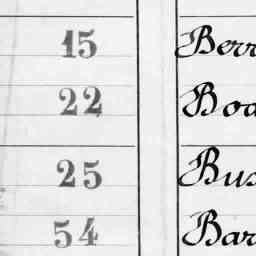 15 Berr
22 Boa
25 Bus
54 Bar